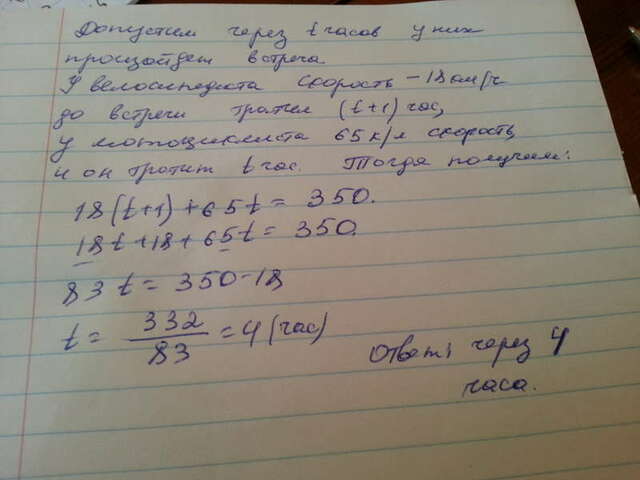 Допустим через t часов у них
произойдет встреча.
У велосипедиста скорость - 18 км/ч
до встречи тратил (t+1) час,
у мотоциклиста 65 к/м скорость,
и он тратит t час. Тогда получаем:
18(t+1)+65t = 350.
18t+18+65t = 350.
83t = 350-18
t = 332/83 = 4 (час)
Ответ: через 4
часа.